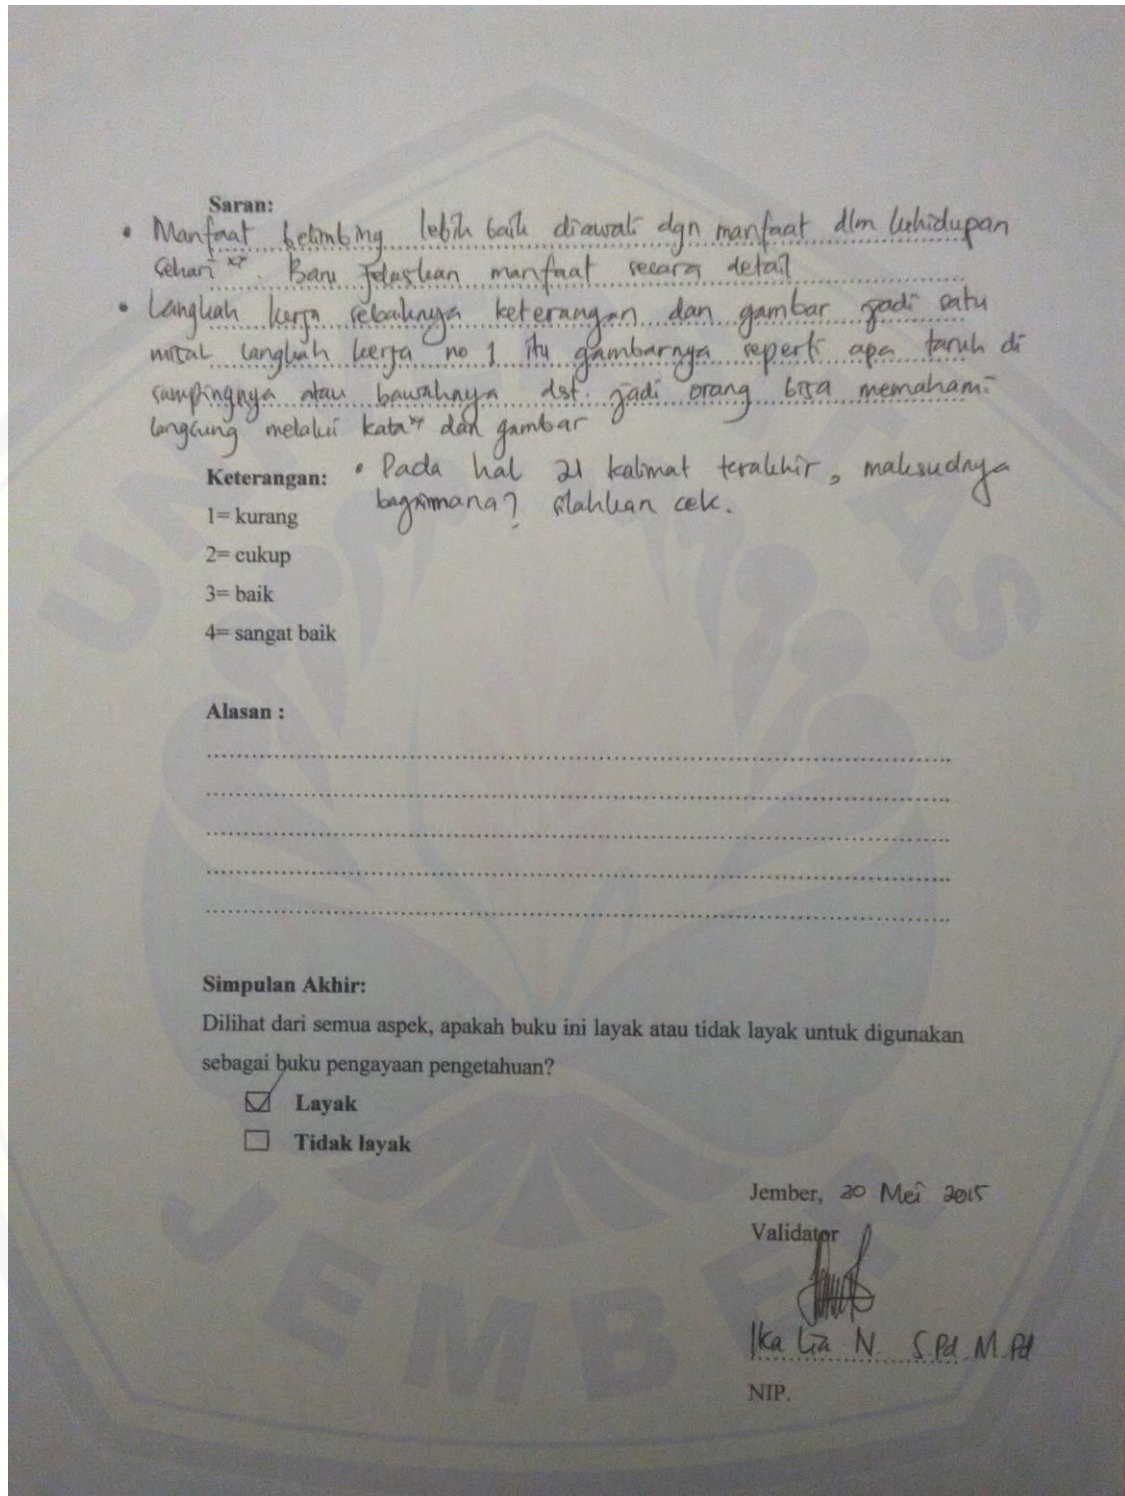 Saran:
• Manfaat belimbing lebih baik diawali dgn manfaat dlm kehidupan
sehari ². Baru jelaskan manfaat secara detail
• Langkah kerja sebaiknya keterangan dan gambar jadi satu
misal langkah kerja no 1 itu gambarnya seperti apa taruh di
sampingnya atau bawahnya dst. jadi orang bisa memahami
langsung melalui kata² dan gambar
Keterangan: • Pada hal 21 kalimat terakhir, maksudnya
bagaimana? silahkan cek.
1= kurang
2= cukup
3= baik
4= sangat baik
Alasan :
Simpulan Akhir:
Dilihat dari semua aspek, apakah buku ini layak atau tidak layak untuk digunakan
sebagai buku pengayaan pengetahuan?
Layak
Tidak layak
Jember, 20 Mei 2015
Validator
Ika Lia N. S.Pd. M.Pd
NIP.
UNIVERSITAS
JEMBER